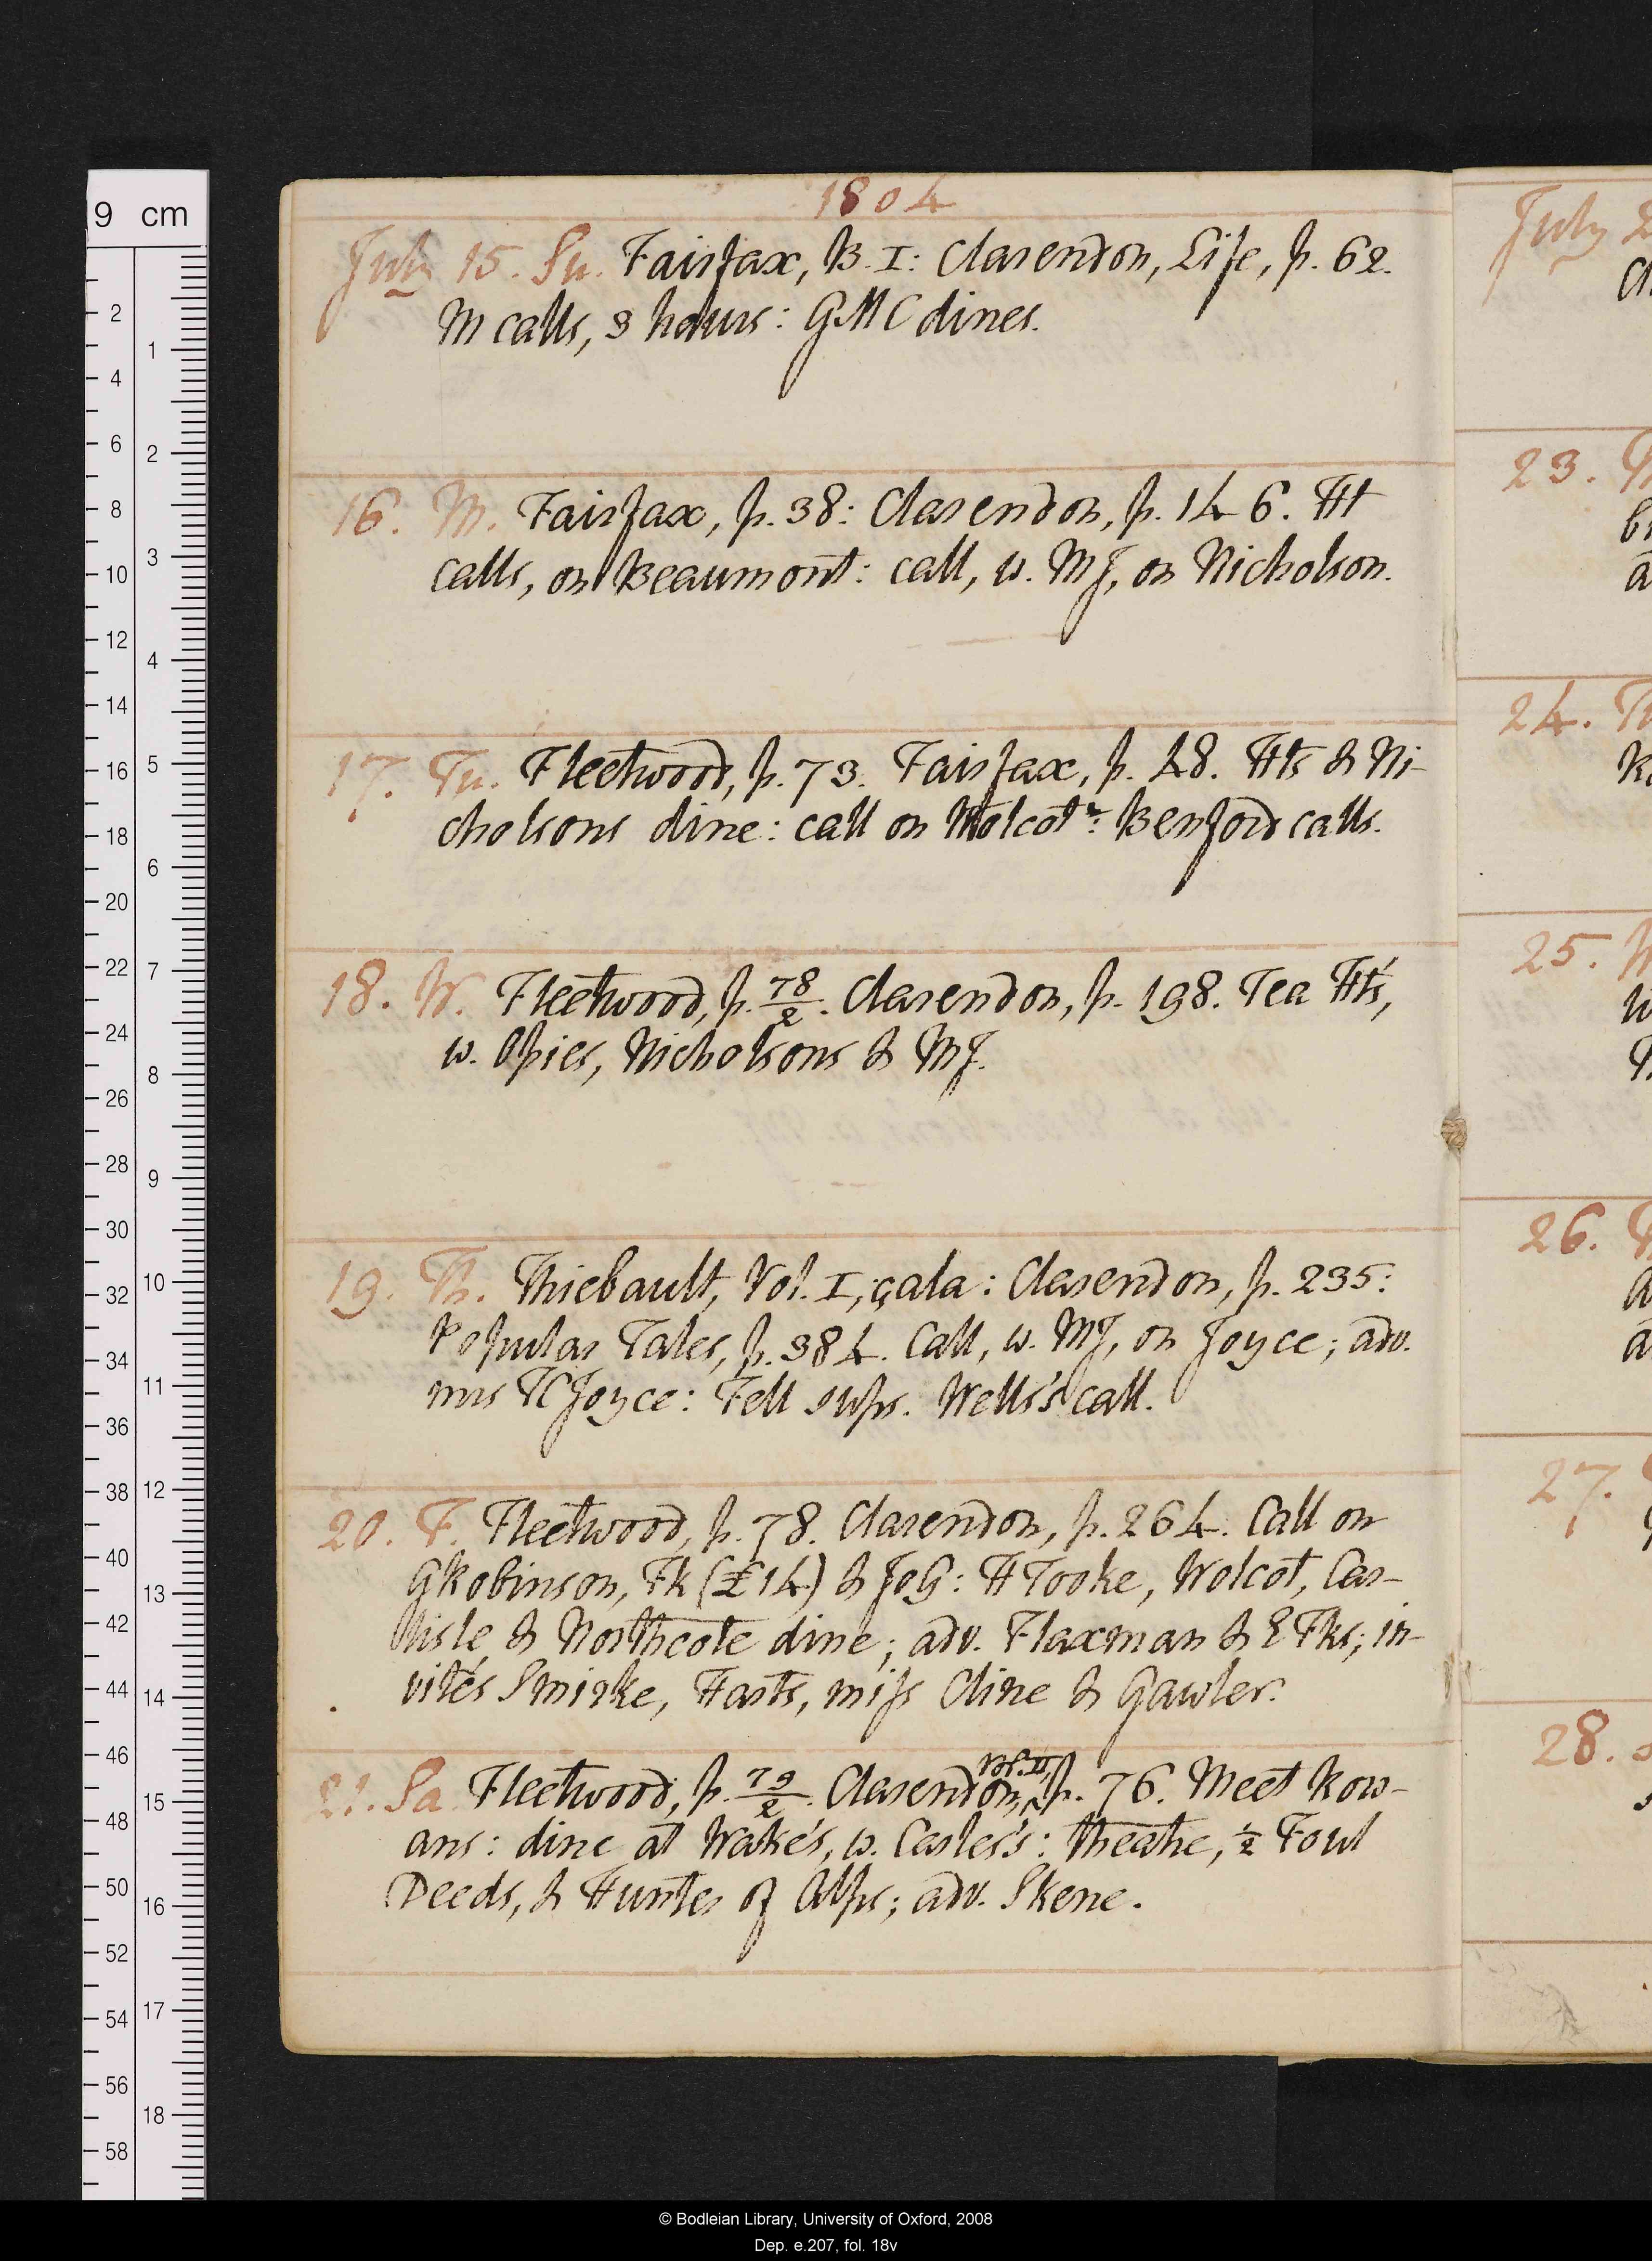 1804
July 15. Su. Fairfax, B. I: Clarendon, Life, p. 62.
M calls, 3 hours: GMC dines.
16. M. Fairfax, p. 38: Clarendon, p. 146. Ht
calls, on Beaumont: call, w. MJ, on Nicholson.
17. Tu. Fleetwood, p. 73. Fairfax, p. 48. Hts & Ni-
cholsons dine: call on Wolcot: Benford calls.
18. W. Fleetwood, p. 78/2. Clarendon, p. 198. Tea Ht's,
w. Opies, Nicholsons & MJ.
19. Th. Thiebault, Vol. I, çala: Clarendon, p. 235:
Popular Tales, p. 384. Call, w. MJ, on Joyce; adv.
mrs TC Joyce: Fell sups. Wells's call.
20. F. Fleetwood, p. 78. Clarendon, p. 264. Call on
GRobinson, Fk (£14) & JoG: HTooke, Wolcot, Car-
lisle & Northcote dine; adv. Flaxman & E Fks; in-
vités Smirke, Harts, miss Cline & Gawler.
21. Sa Fleetwood, p. 79/2. Clarendon, Vol. II, p. 76. Meet Row-
ans: dine at Wake's, w. Carles's: theatre, ½ Foul
Deeds, & Hunter of Alps; adv. Skene.
July 2
23.
24.
25.
26.
27.
28.
9 cm
2
4
6
8
10
12
14
16
18
20
22
24
26
28
30
32
34
36
38
40
42
44
46
48
50
52
54
56
58
1
2
3
4
5
6
7
8
9
10
11
12
13
14
15
16
17
18
© Bodleian Library, University of Oxford, 2008
Dep. e.207, fol. 18v